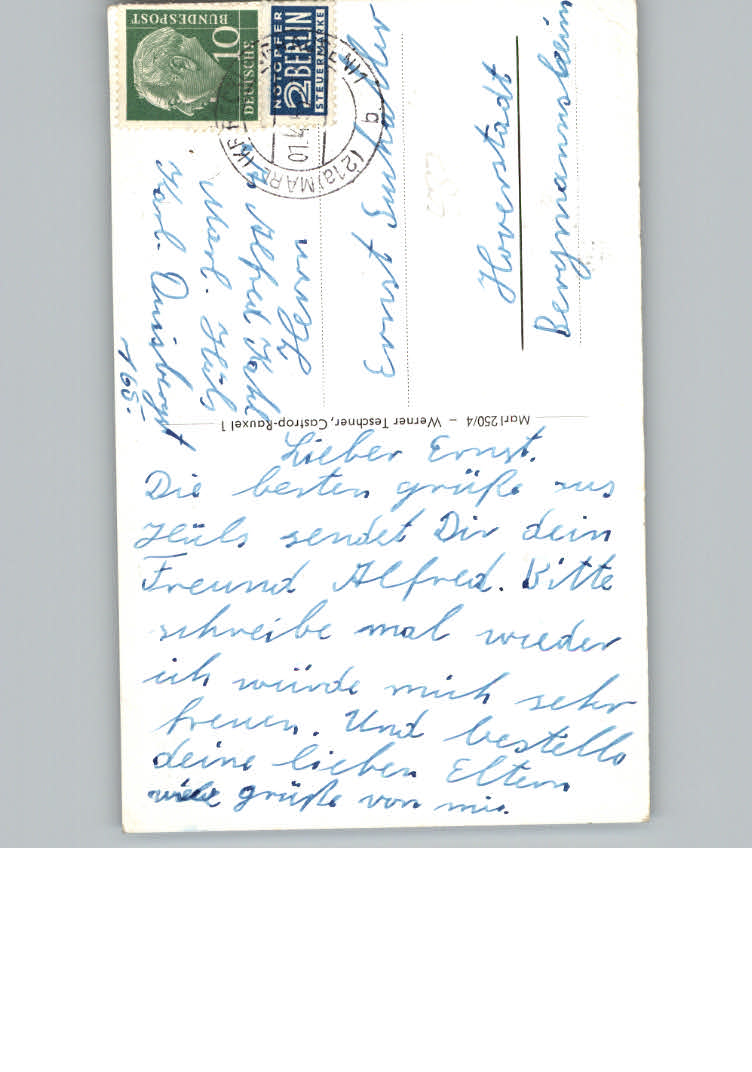 Lieber Ernst.
Die besten grüße aus
Hüls sendet Dir dein
Freund Alfred. Bitte
schreibe mal wieder
ich würde mich sehr
freuen. Und bestelle
deine lieben Eltern
viele grüße von mir.
Marl 250/4 – Werner Teschner, Castrop-Rauxel 1
Abs. Alfred Kohl
Marl. Hüls
Karl. Duisbergst
165.
DEUTSCHE
BUNDESPOST
10
NOTOPFER
2 BERLIN
STEUERMARKE
(21a) MARL
b
01.4
Herrn
Ernst
Hoverstadt
Bergmannsheim